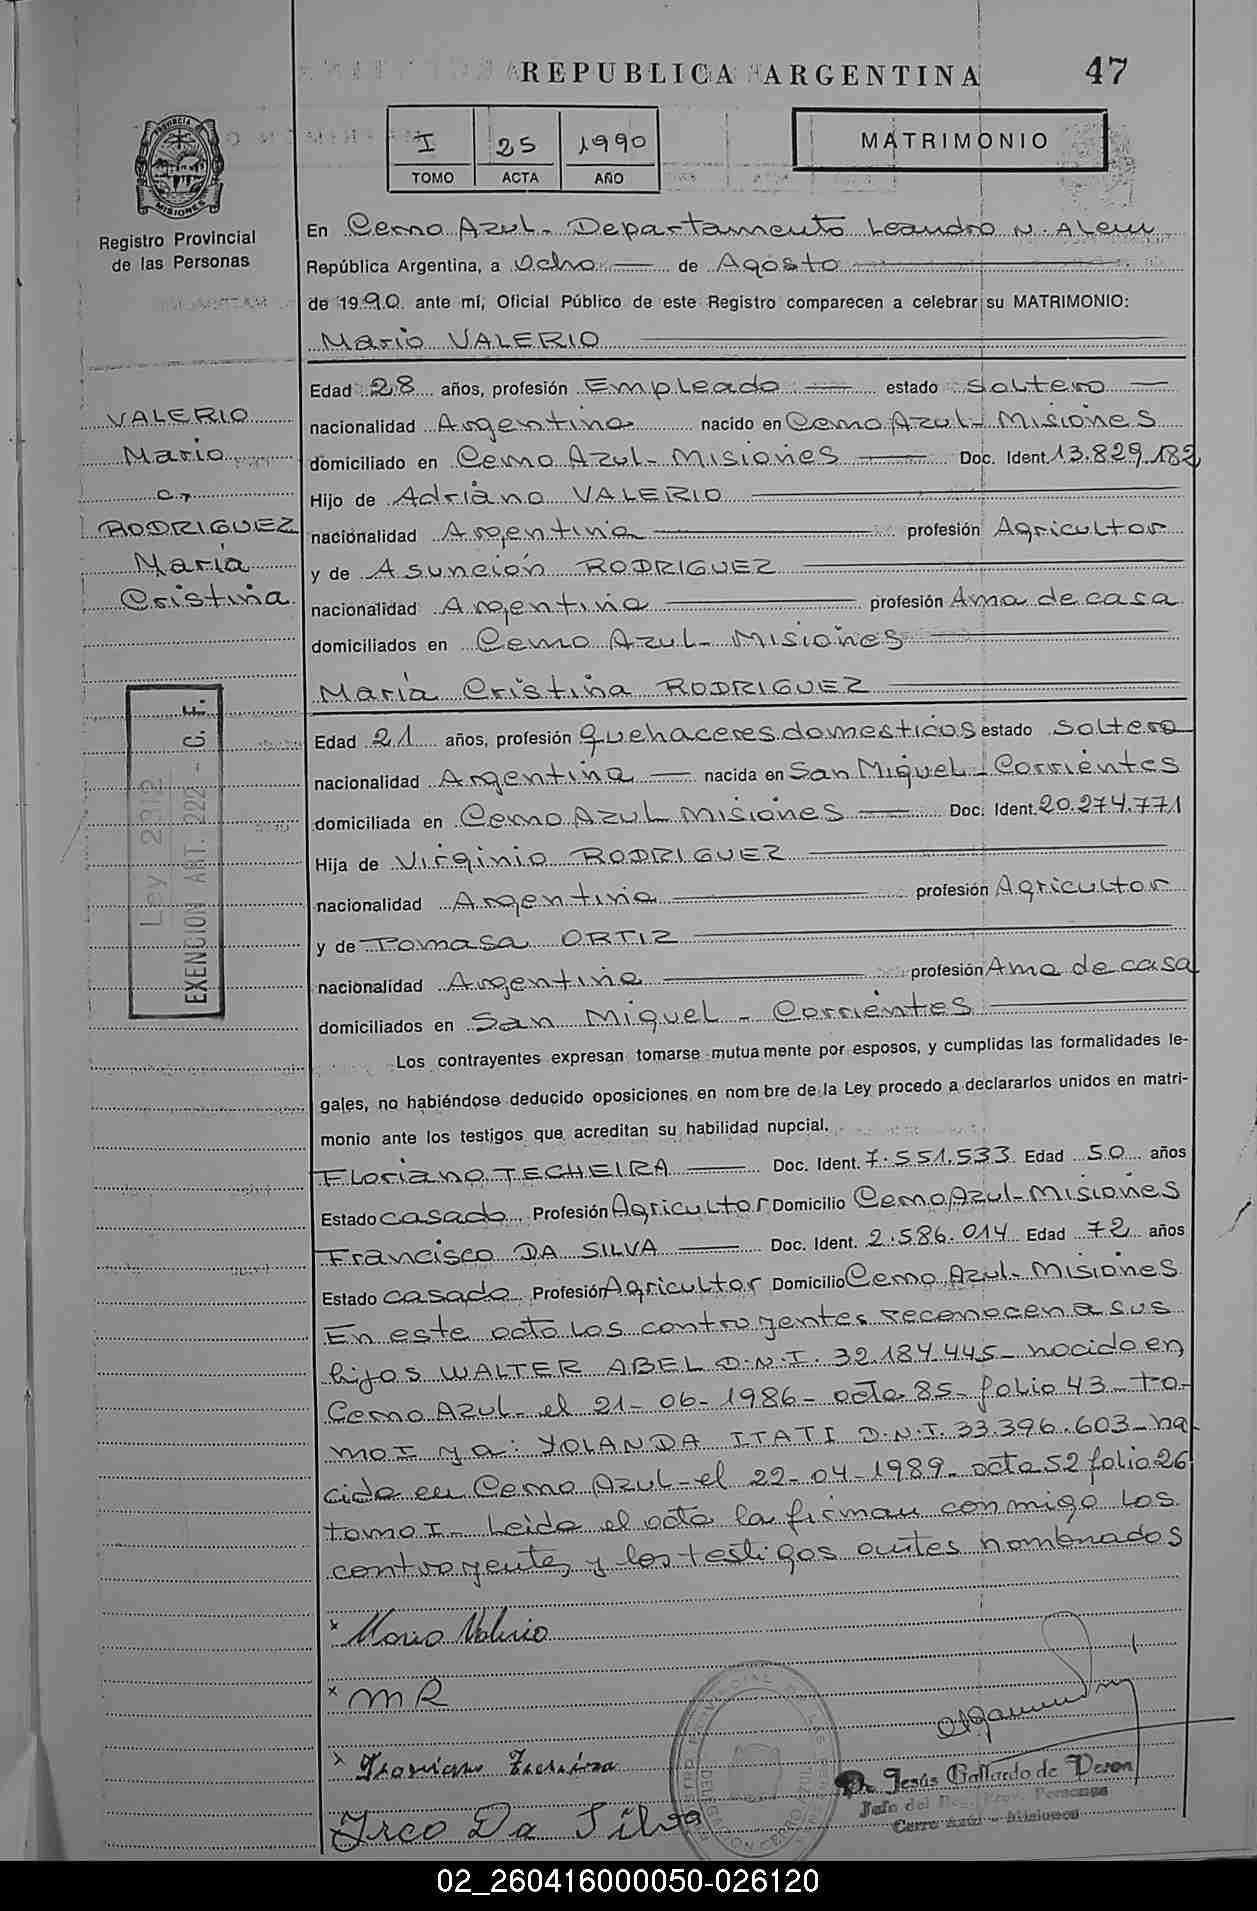 REPUBLICA ARGENTINA
47
I 25 1990
TOMO ACTA AÑO
MATRIMONIO
PROVINCIA
MISIONES
Registro Provincial
de las Personas
En Cerro Azul - Departamento Leandro N. Alem
República Argentina, a Ocho de Agosto
de 1990 ante mí, Oficial Público de este Registro comparecen a celebrar su MATRIMONIO:
Mario VALERIO
Edad 28 años, profesión Empleado estado Soltero
nacionalidad Argentina nacido en Cerro Azul - Misiones
domiciliado en Cerro Azul - Misiones Doc. Ident. 13.829.182
Hijo de Adriano VALERIO
nacionalidad Argentina profesión Agricultor
y de Asunción RODRIGUEZ
nacionalidad Argentina profesión Ama de casa
domiciliados en Cerro Azul - Misiones
María Cristina RODRIGUEZ
VALERIO
Mario
c/
RODRIGUEZ
María
Cristina
Ley 2312
EXENCION ART. 222 - C. F.
Edad 21 años, profesión quehaceres domesticos estado Soltera
nacionalidad Argentina nacida en San Miguel - Corrientes
domiciliada en Cerro Azul Misiones Doc. Ident. 20.274.771
Hija de Virginio RODRIGUEZ
nacionalidad Argentina profesión Agricultor
y de Tomasa ORTIZ
nacionalidad Argentina profesión Ama de casa
domiciliados en San Miguel - Corrientes
Los contrayentes expresan tomarse mutuamente por esposos, y cumplidas las formalidades le-
gales, no habiéndose deducido oposiciones en nombre de la Ley procedo a declararlos unidos en matri-
monio ante los testigos que acreditan su habilidad nupcial.
Floriano TECHEIRA Doc. Ident. 7.551.533 Edad 50 años
Estado casado Profesión Agricultor Domicilio Cerro Azul - Misiones
Francisco DA SILVA Doc. Ident. 2.586.014 Edad 72 años
Estado casado Profesión Agricultor Domicilio Cerro Azul - Misiones
En este acto los contrayentes reconocen a sus
hijos WALTER ABEL D.N.I. 32.184.445 - nacido en
Cerro Azul - el 21-06-1986 - acta 85 - folio 43 - to-
mo I y a: YOLANDA ITATI D.N.I. 33.396.603 - na-
cida en Cerro Azul - el 22-04-1989 - acta 52 folio 26
tomo I - Leida el acta la firman conmigo los
contrayentes y los testigos antes nombrados
x Mario Valerio
x M R
x
Frco Da Silva
Dr. Jesús Gallardo de Veron
Jefe del Reg. Prov. Personas
Cerro Azul - Misiones
02_260416000050-026120